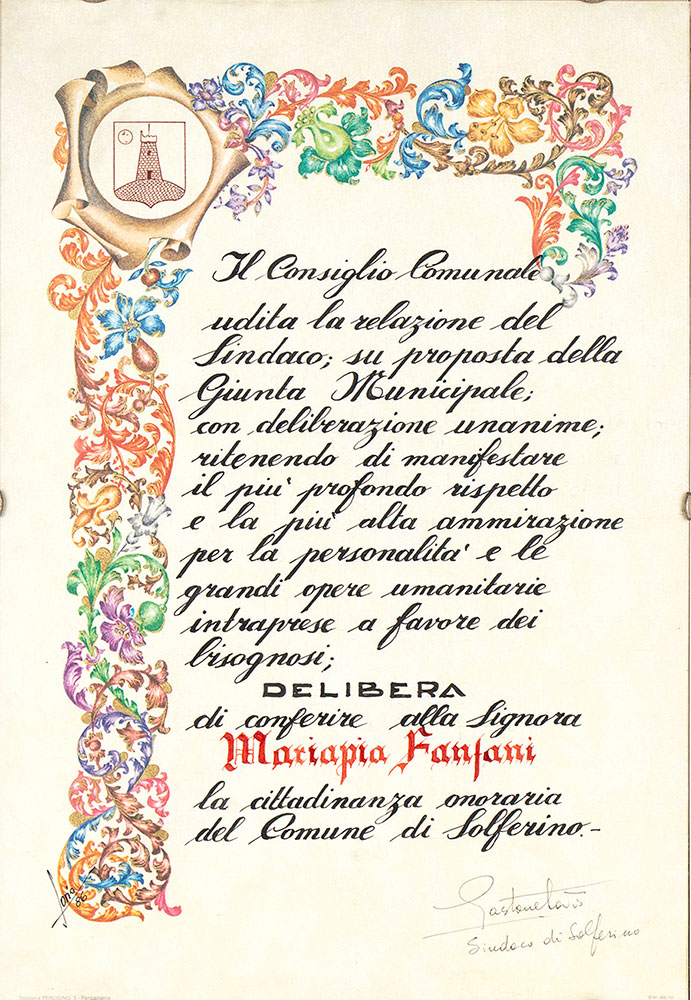 Il Consiglio Comunale
udita la relazione del
Sindaco; su proposta della
Giunta Municipale;
con deliberazione unanime;
ritenendo di manifestare
il piu' profondo rispetto
e la piu' alta ammirazione
per la personalita' e le
grandi opere umanitarie
intraprese a favore dei
bisognosi;
DELIBERA
di conferire alla Signora
Mariapia Fanfani
la cittadinanza onoraria
del Comune di Solferino.-
86
Sindaco di Solferino